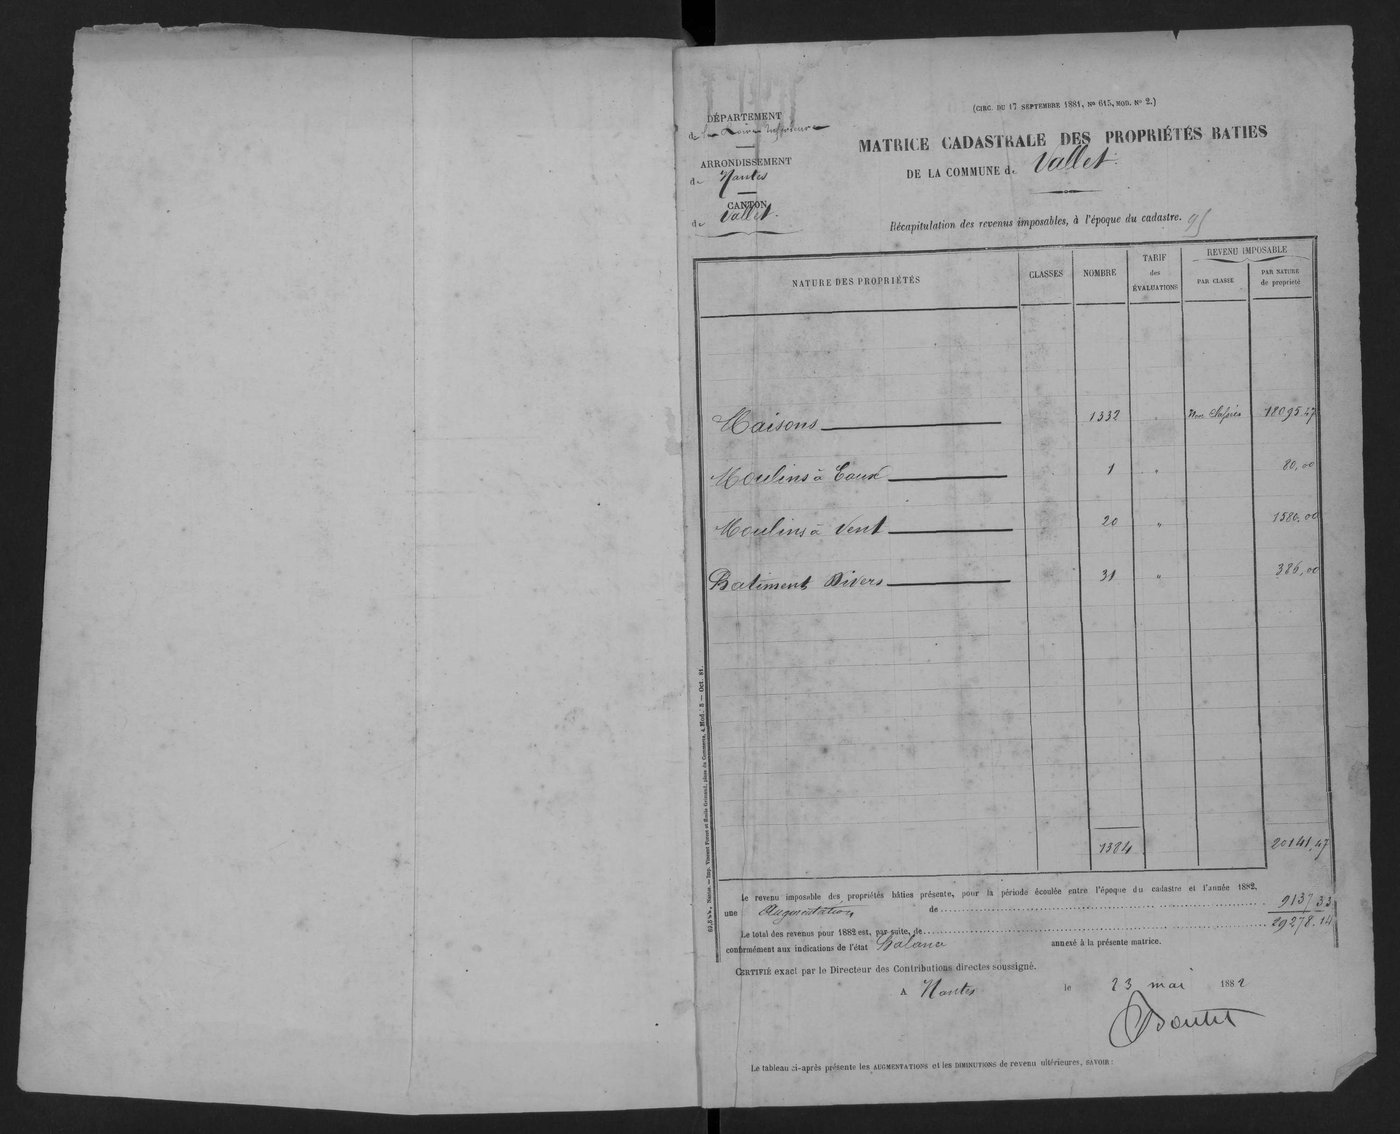 (CIRC. DU 17 SEPTEMBRE 1881, No 615, MOD. No 2.)
DÉPARTEMENT
de la Loire Inférieure
ARRONDISSEMENT
de Nantes
CANTON
de Vallet.
MATRICE CADASTRALE DES PROPRIÉTÉS BATIES
DE LA COMMUNE de Vallet.
Récapitulation des revenus imposables, à l'époque du cadastre. 95
NATURE DES PROPRIÉTÉS CLASSES NOMBRE TARIF des ÉVALUATIONS REVENU IMPOSABLE PAR CLASSE PAR NATURE de propriété
Maisons 1332 " 18095.47
Moulins à Eaux 1 " 80,00
Moulins à Vent 20 " 1580,00
Batiment Divers 31 " 386,00
1384 20141,47
Le revenu imposable des propriétés bâties présente, pour la période écoulée entre l'époque du cadastre et l'année 1882,
une Augmentation de 9137,33
Le total des revenus pour 1882 est, par suite, de 29278.14
conformément aux indications de l'état Balance annexé à la présente matrice.
CERTIFIÉ exact par le Directeur des Contributions directes soussigné.
A Nantes le 23 mai 1882
Le tableau ci-après présente les AUGMENTATIONS et les DIMINUTIONS de revenu ultérieures, SAVOIR :